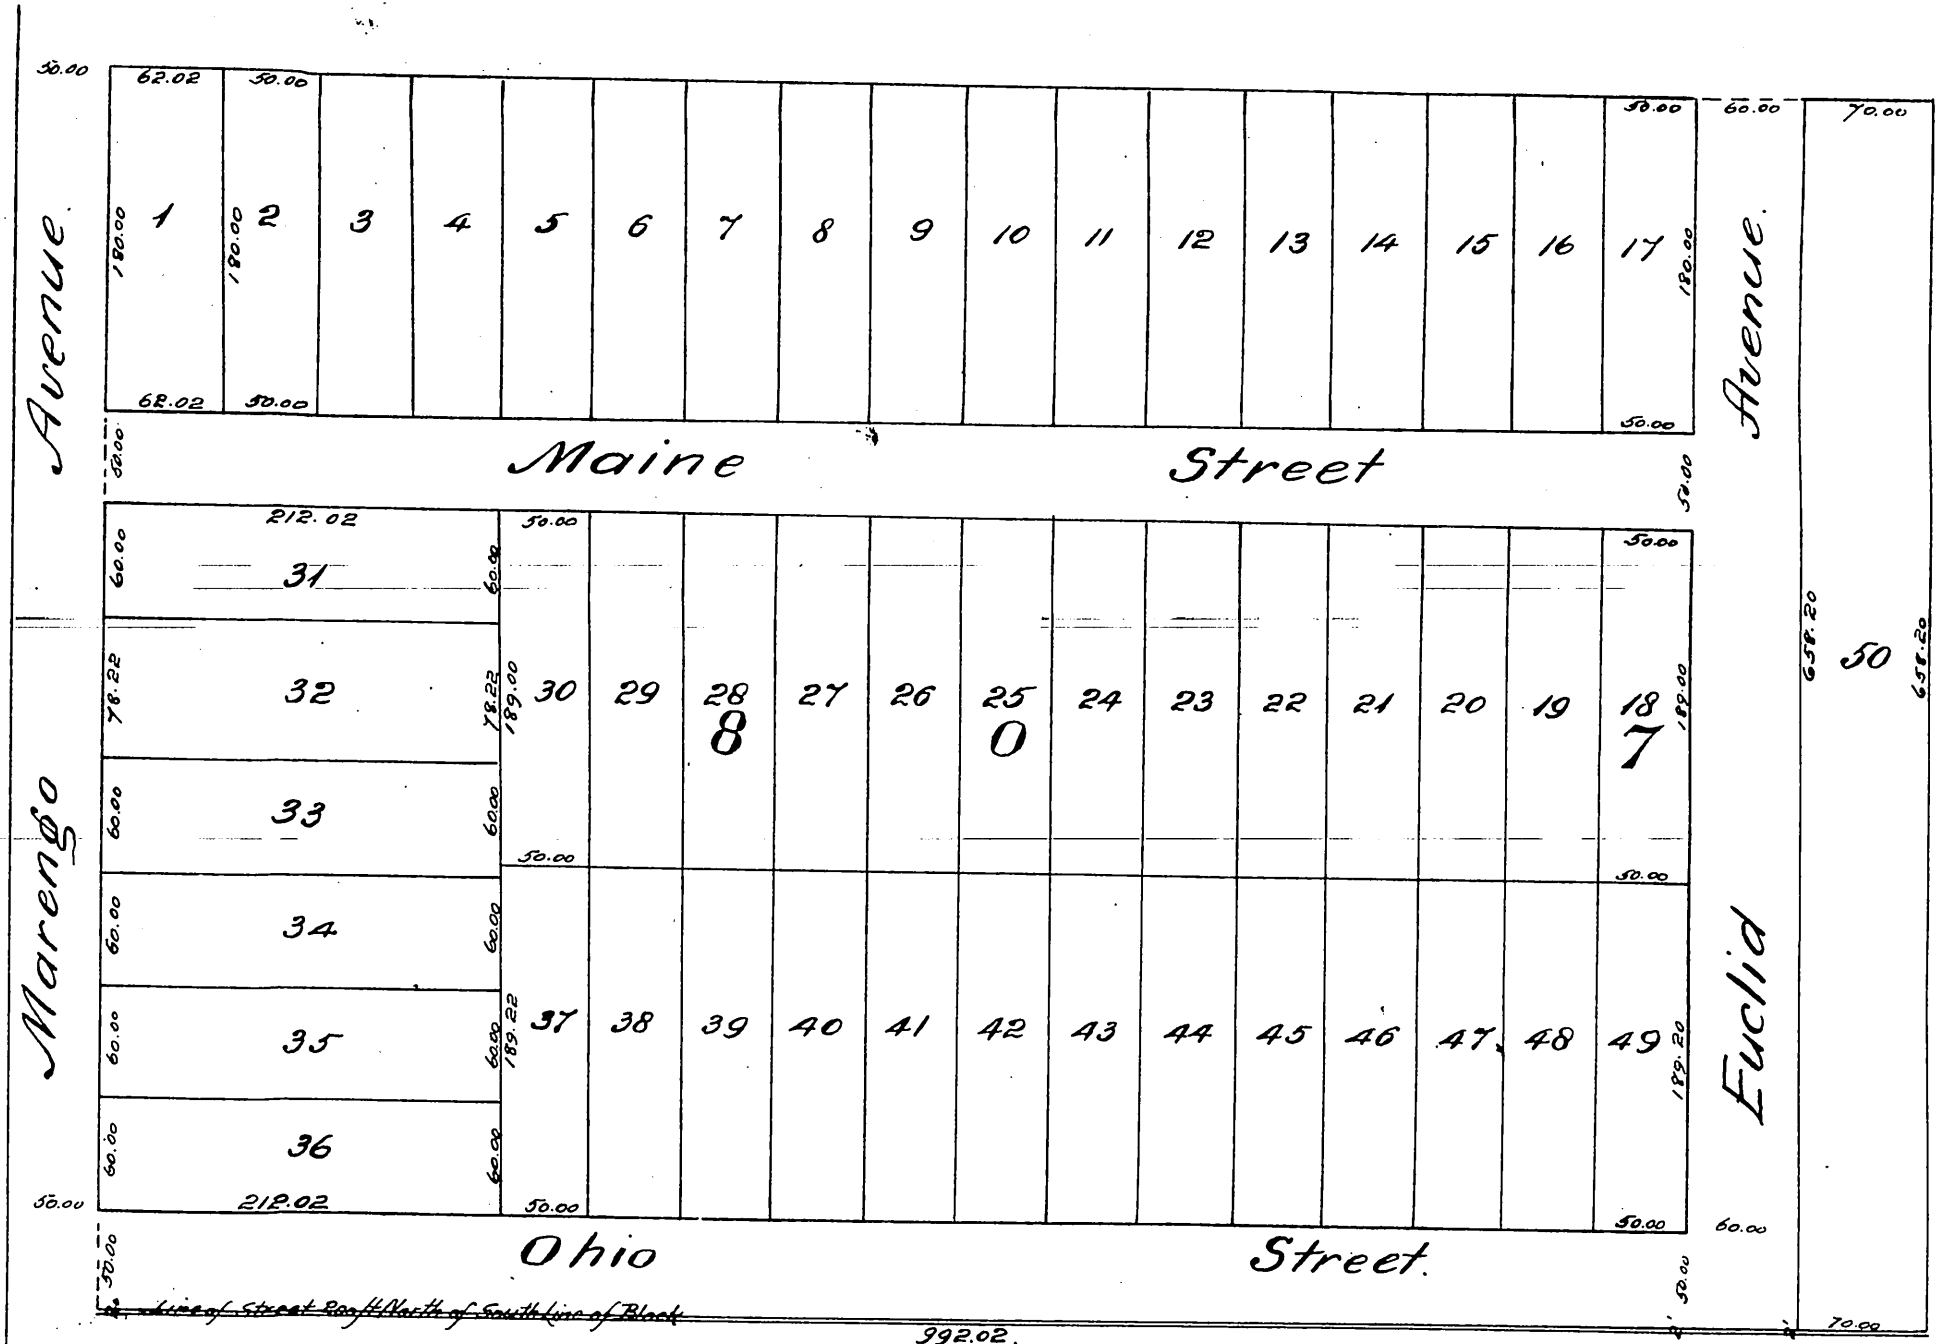 50.00 62.02 50.00 50.00 60.00 70.00
180.00 1 180.00 2 3 4 5 6 7 8 9 10 11 12 13 14 15 16 17 180.00
62.02 50.00 50.00
Avenue.
Avenue.
50.00 Maine Street 50.00
212.02 50.00 50.00
60.00 31 60.00
78.22 32 78.22
189.00 30 29 28 27 26 25 24 23 22 21 20 19 18 189.00
8 0 7
658.20 50 658.20
60.00 33 60.00
50.00 50.00
Marengo
60.00 34 60.00
Euclid
60.00 35 60.00
189.22 37 38 39 40 41 42 43 44 45 46 47 48 49 189.20
60.00 36 60.00
50.00 212.02 50.00 50.00 60.00
50.00 Ohio Street. 50.00
2' Line of Street 2.00 ft North of South Line of Block 2' 2' 70.00
992.02.